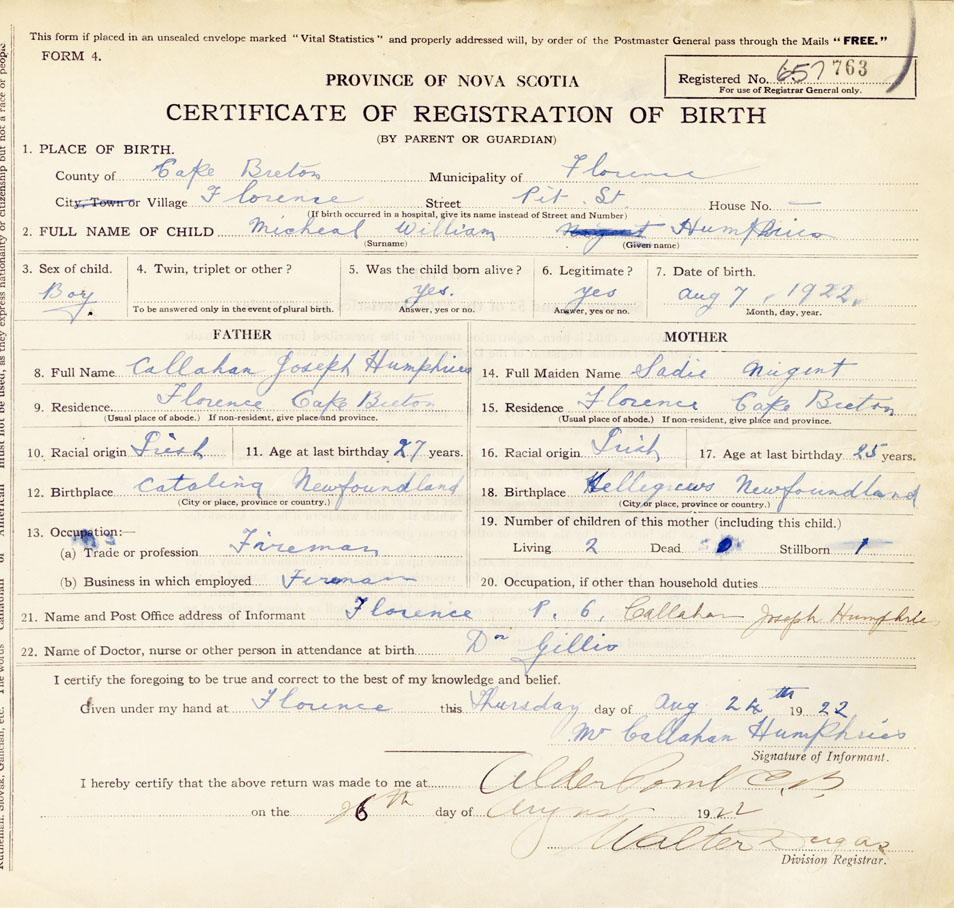 This form if placed in an unsealed envelope marked "Vital Statistics" and properly addressed will, by order of the Postmaster General pass through the Mails "FREE."
FORM 4.
PROVINCE OF NOVA SCOTIA
Registered No. 657 763
For use of Registrar General only.
CERTIFICATE OF REGISTRATION OF BIRTH
(BY PARENT OR GUARDIAN)
1. PLACE OF BIRTH.
County of Cape Breton Municipality of Florence
City, Town or Village Florence Street Pit St House No. —
(If birth occurred in a hospital, give its name instead of Street and Number)
2. FULL NAME OF CHILD Micheal William Nugent Humphries
(Surname) (Given name)
3. Sex of child. 4. Twin, triplet or other? 5. Was the child born alive? 6. Legitimate? 7. Date of birth.
Boy yes. yes Aug 7, 1922.
To be answered only in the event of plural birth. Answer, yes or no. Answer, yes or no. Month, day, year.
FATHER MOTHER
8. Full Name Callahan Joseph Humphries 14. Full Maiden Name Sadie Nugent
9. Residence. Florence Cape Breton 15. Residence Florence Cape Breton
(Usual place of abode.) If non-resident, give place and province. (Usual place of abode.) If non-resident, give place and province.
10. Racial origin Irish 11. Age at last birthday 27 years. 16. Racial origin Irish 17. Age at last birthday 25 years.
12. Birthplace Catalina Newfoundland 18. Birthplace Kellegrews Newfoundland
(City or place, province or country.) (City or place, province or country.)
13. Occupation:— 19. Number of children of this mother (including this child.)
(a) Trade or profession Fireman Living 2 Dead 0 Stillborn 1
(b) Business in which employed Fireman 20. Occupation, if other than household duties
21. Name and Post Office address of Informant Florence P. O. Callahan Joseph Humphries
22. Name of Doctor, nurse or other person in attendance at birth. Dr Gillis
I certify the foregoing to be true and correct to the best of my knowledge and belief.
Given under my hand at Florence this Thursday day of Aug 24th 1922
Mr Callahan Humphries
Signature of Informant.
I hereby certify that the above return was made to me at Alder Point C. B.
on the 26th day of August 1922
Walter Dugas
Division Registrar.